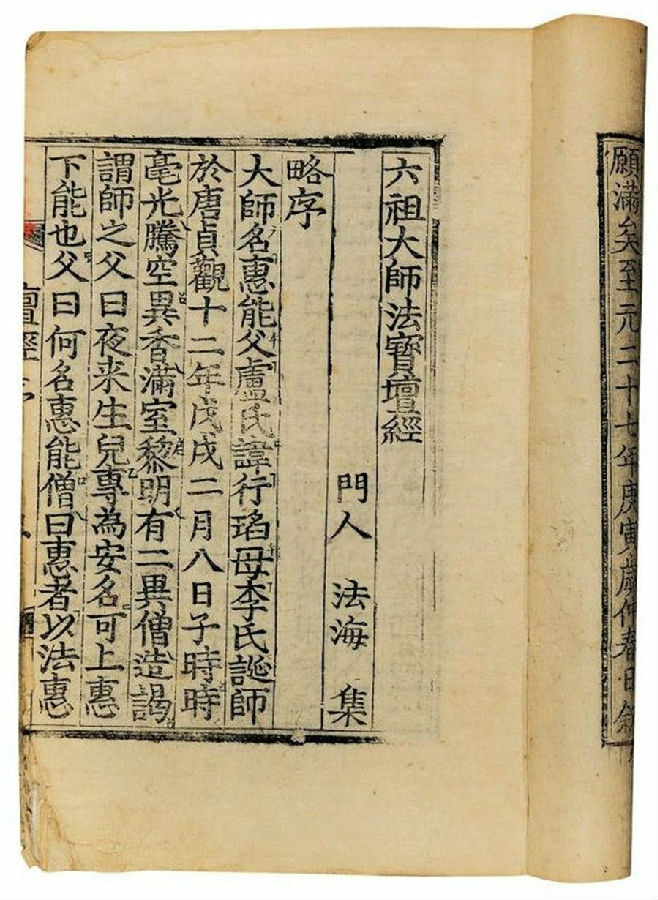 願滿矣至元二十七年庚寅歲仲春日敘
六祖大師法寶壇經
門人 法海 集
略序
大師名惠能父盧氏諱行瑫母李氏誕師
於唐貞觀十二年戊戌二月八日子時時
毫光騰空異香滿室黎明有二異僧造謁
謂師之父曰夜来生兒專為安名可上惠
下能也父曰何名惠能僧曰惠者以法惠
壇經